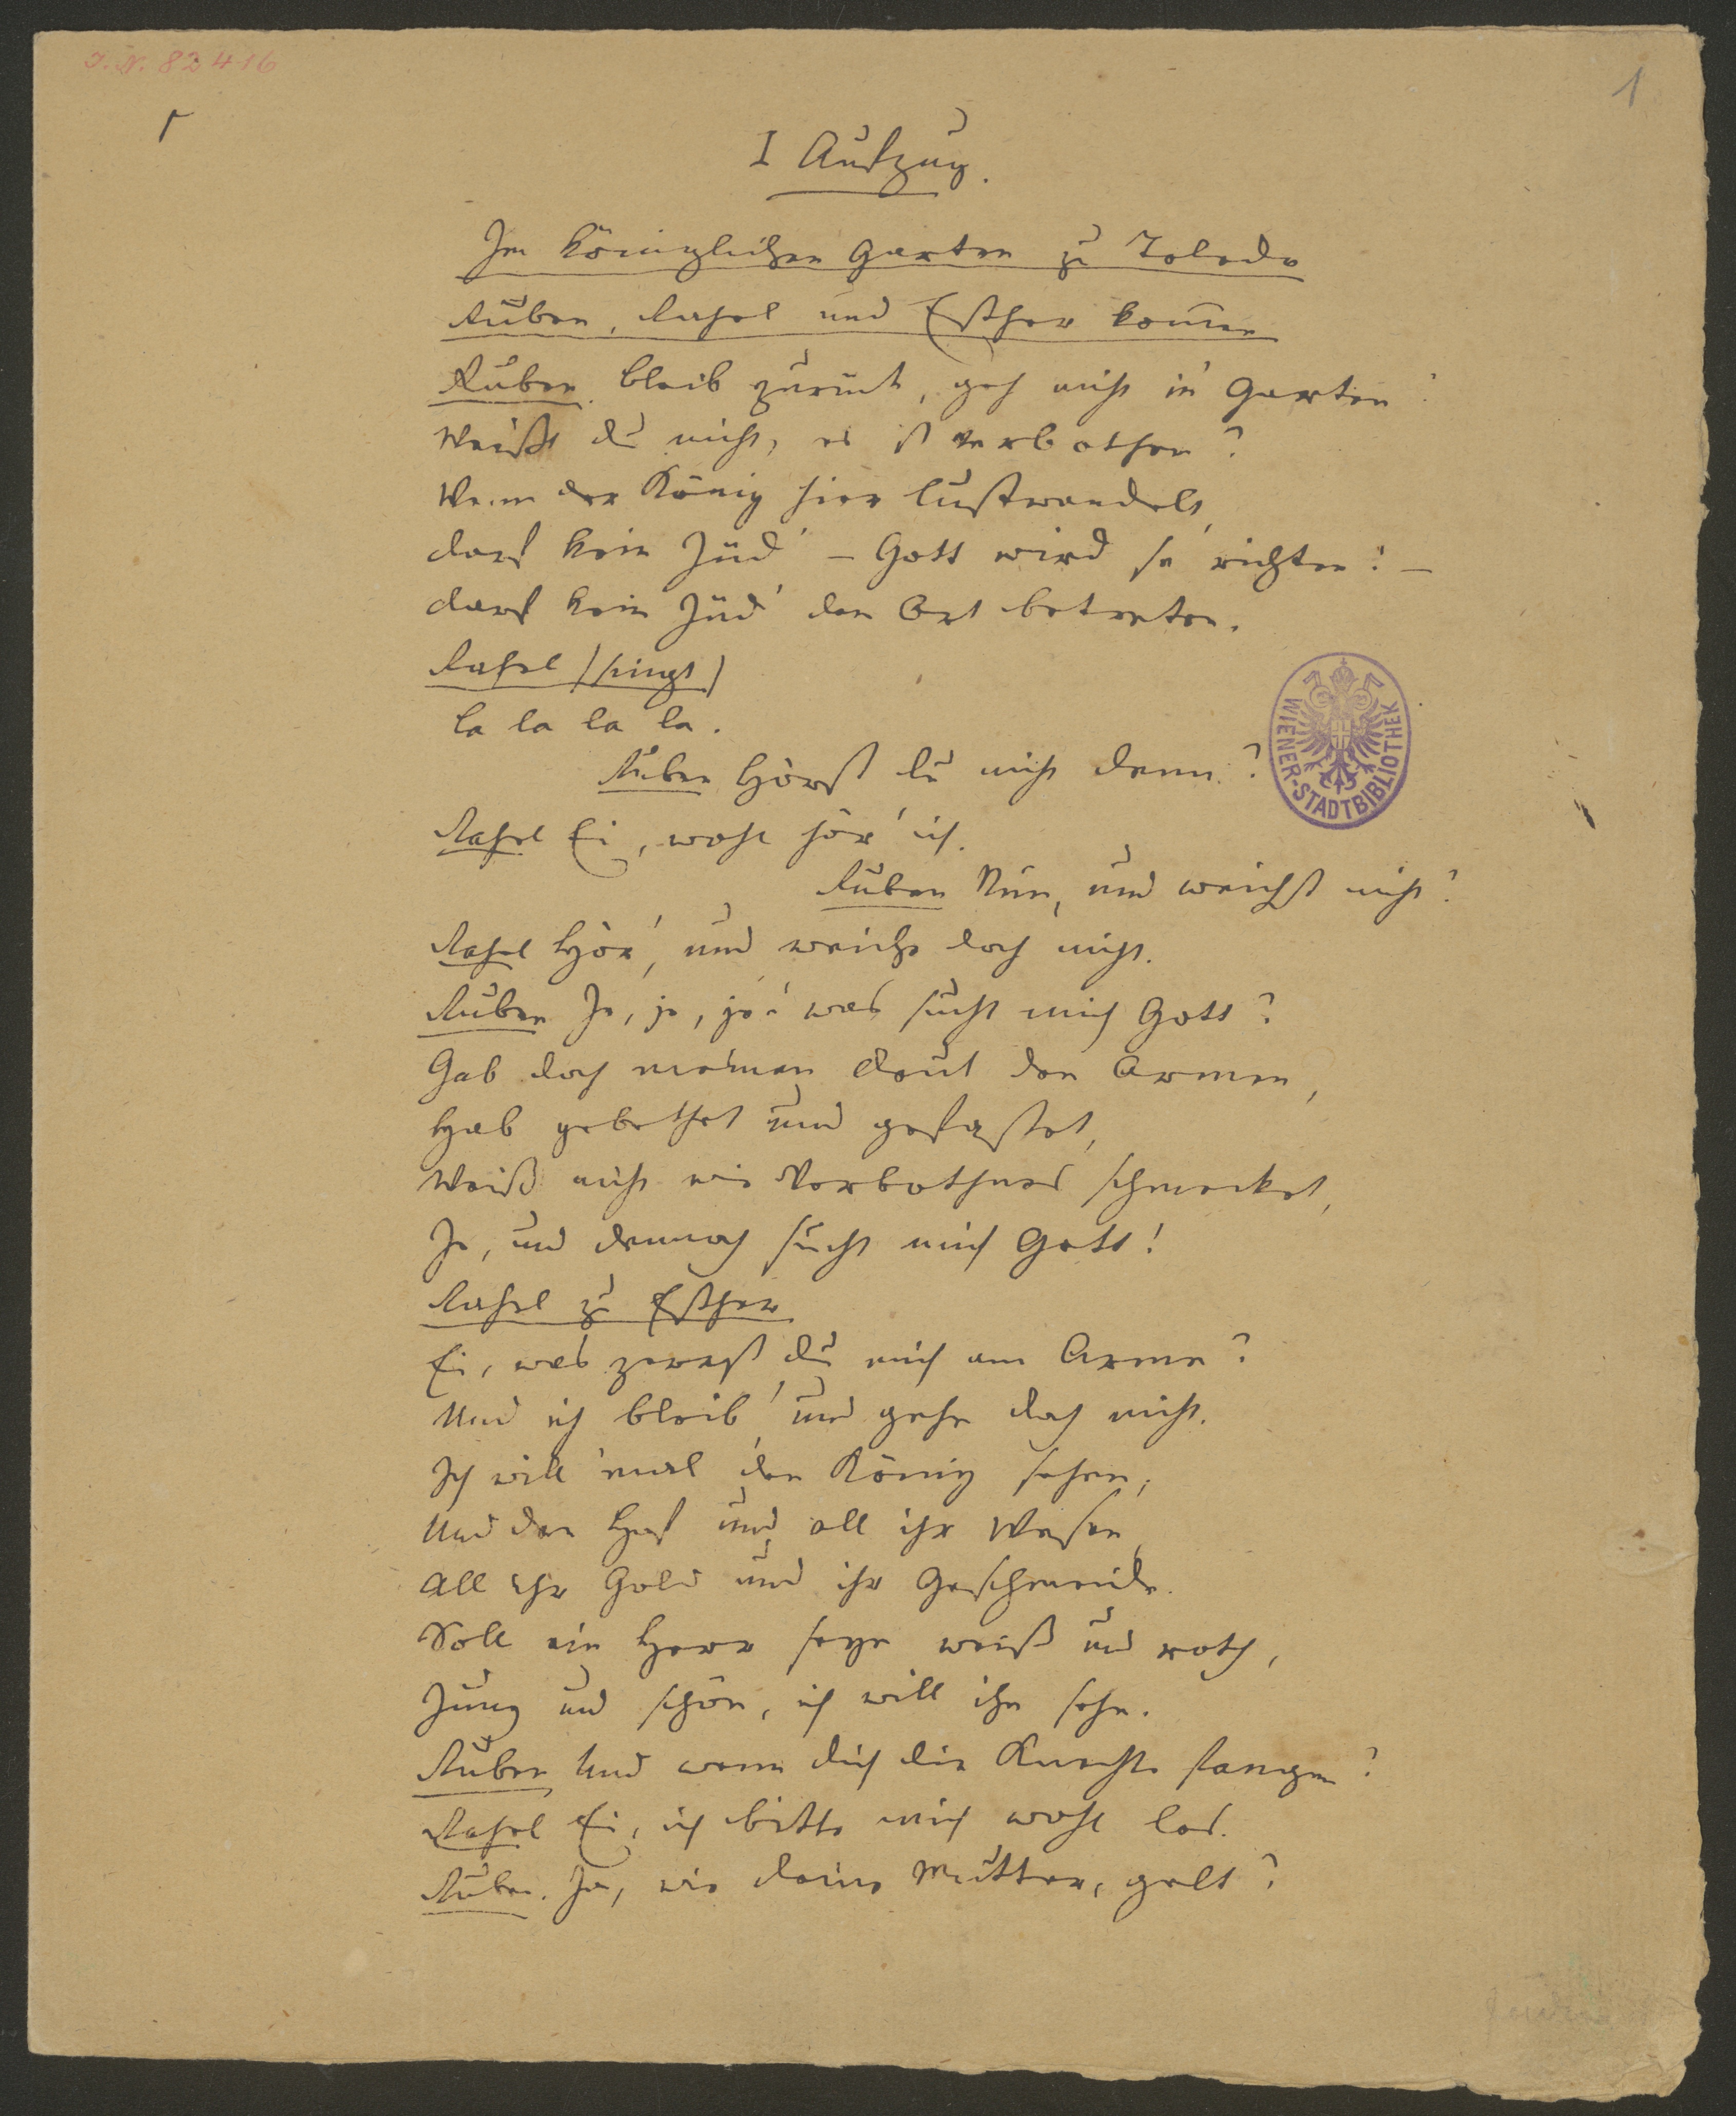 I. N. 82416
1
I Aufzug.
Im königlichen Garten zu Toledo
Ruben, Rahel und Esther kom̄en
Ruben. Bleib zurück, geh nicht in Garten!
Weißt du nicht, es ist verbothen?
Wenn der König hier lustwandelt,
darf kein Jüd' – Gott wird sie richten! –
darf kein Jüd' den Ort betreten.
Rahel (singt)
La la la la.
Ruben Hörst du nicht denn?
Rahel Ei, wohl hör' ich.
Ruben Nun, und weichst nicht?
Rahel Hör', und weiche doch nicht.
Ruben Je, je, je! was sucht mich Gott?
Gab doch meinen Deut den Armen,
Hab gebethet und gefastet,
Weiß nicht wie Verbothnes schmecket,
Je, und dennoch sucht mich Gott!
Rahel zu Esther
Ei, was zerrst du mich am Arme?
Und ich bleib' und gehe doch nicht.
Ich will 'mal den König sehen,
Und den Hof und all ihr Wesen,
All ihr Gold und ihr Geschmeide.
Soll ein Herr seyn weiß und roth,
Jung und schön, ich will ihn sehn.
Ruben Und wenn dich die Knechte fangen?
Rahel Ei, ich bitte mich wohl los.
Ruben. Ja, wie deine Mutter, gelt?
WIENER-STADTBIBLIOTHEK